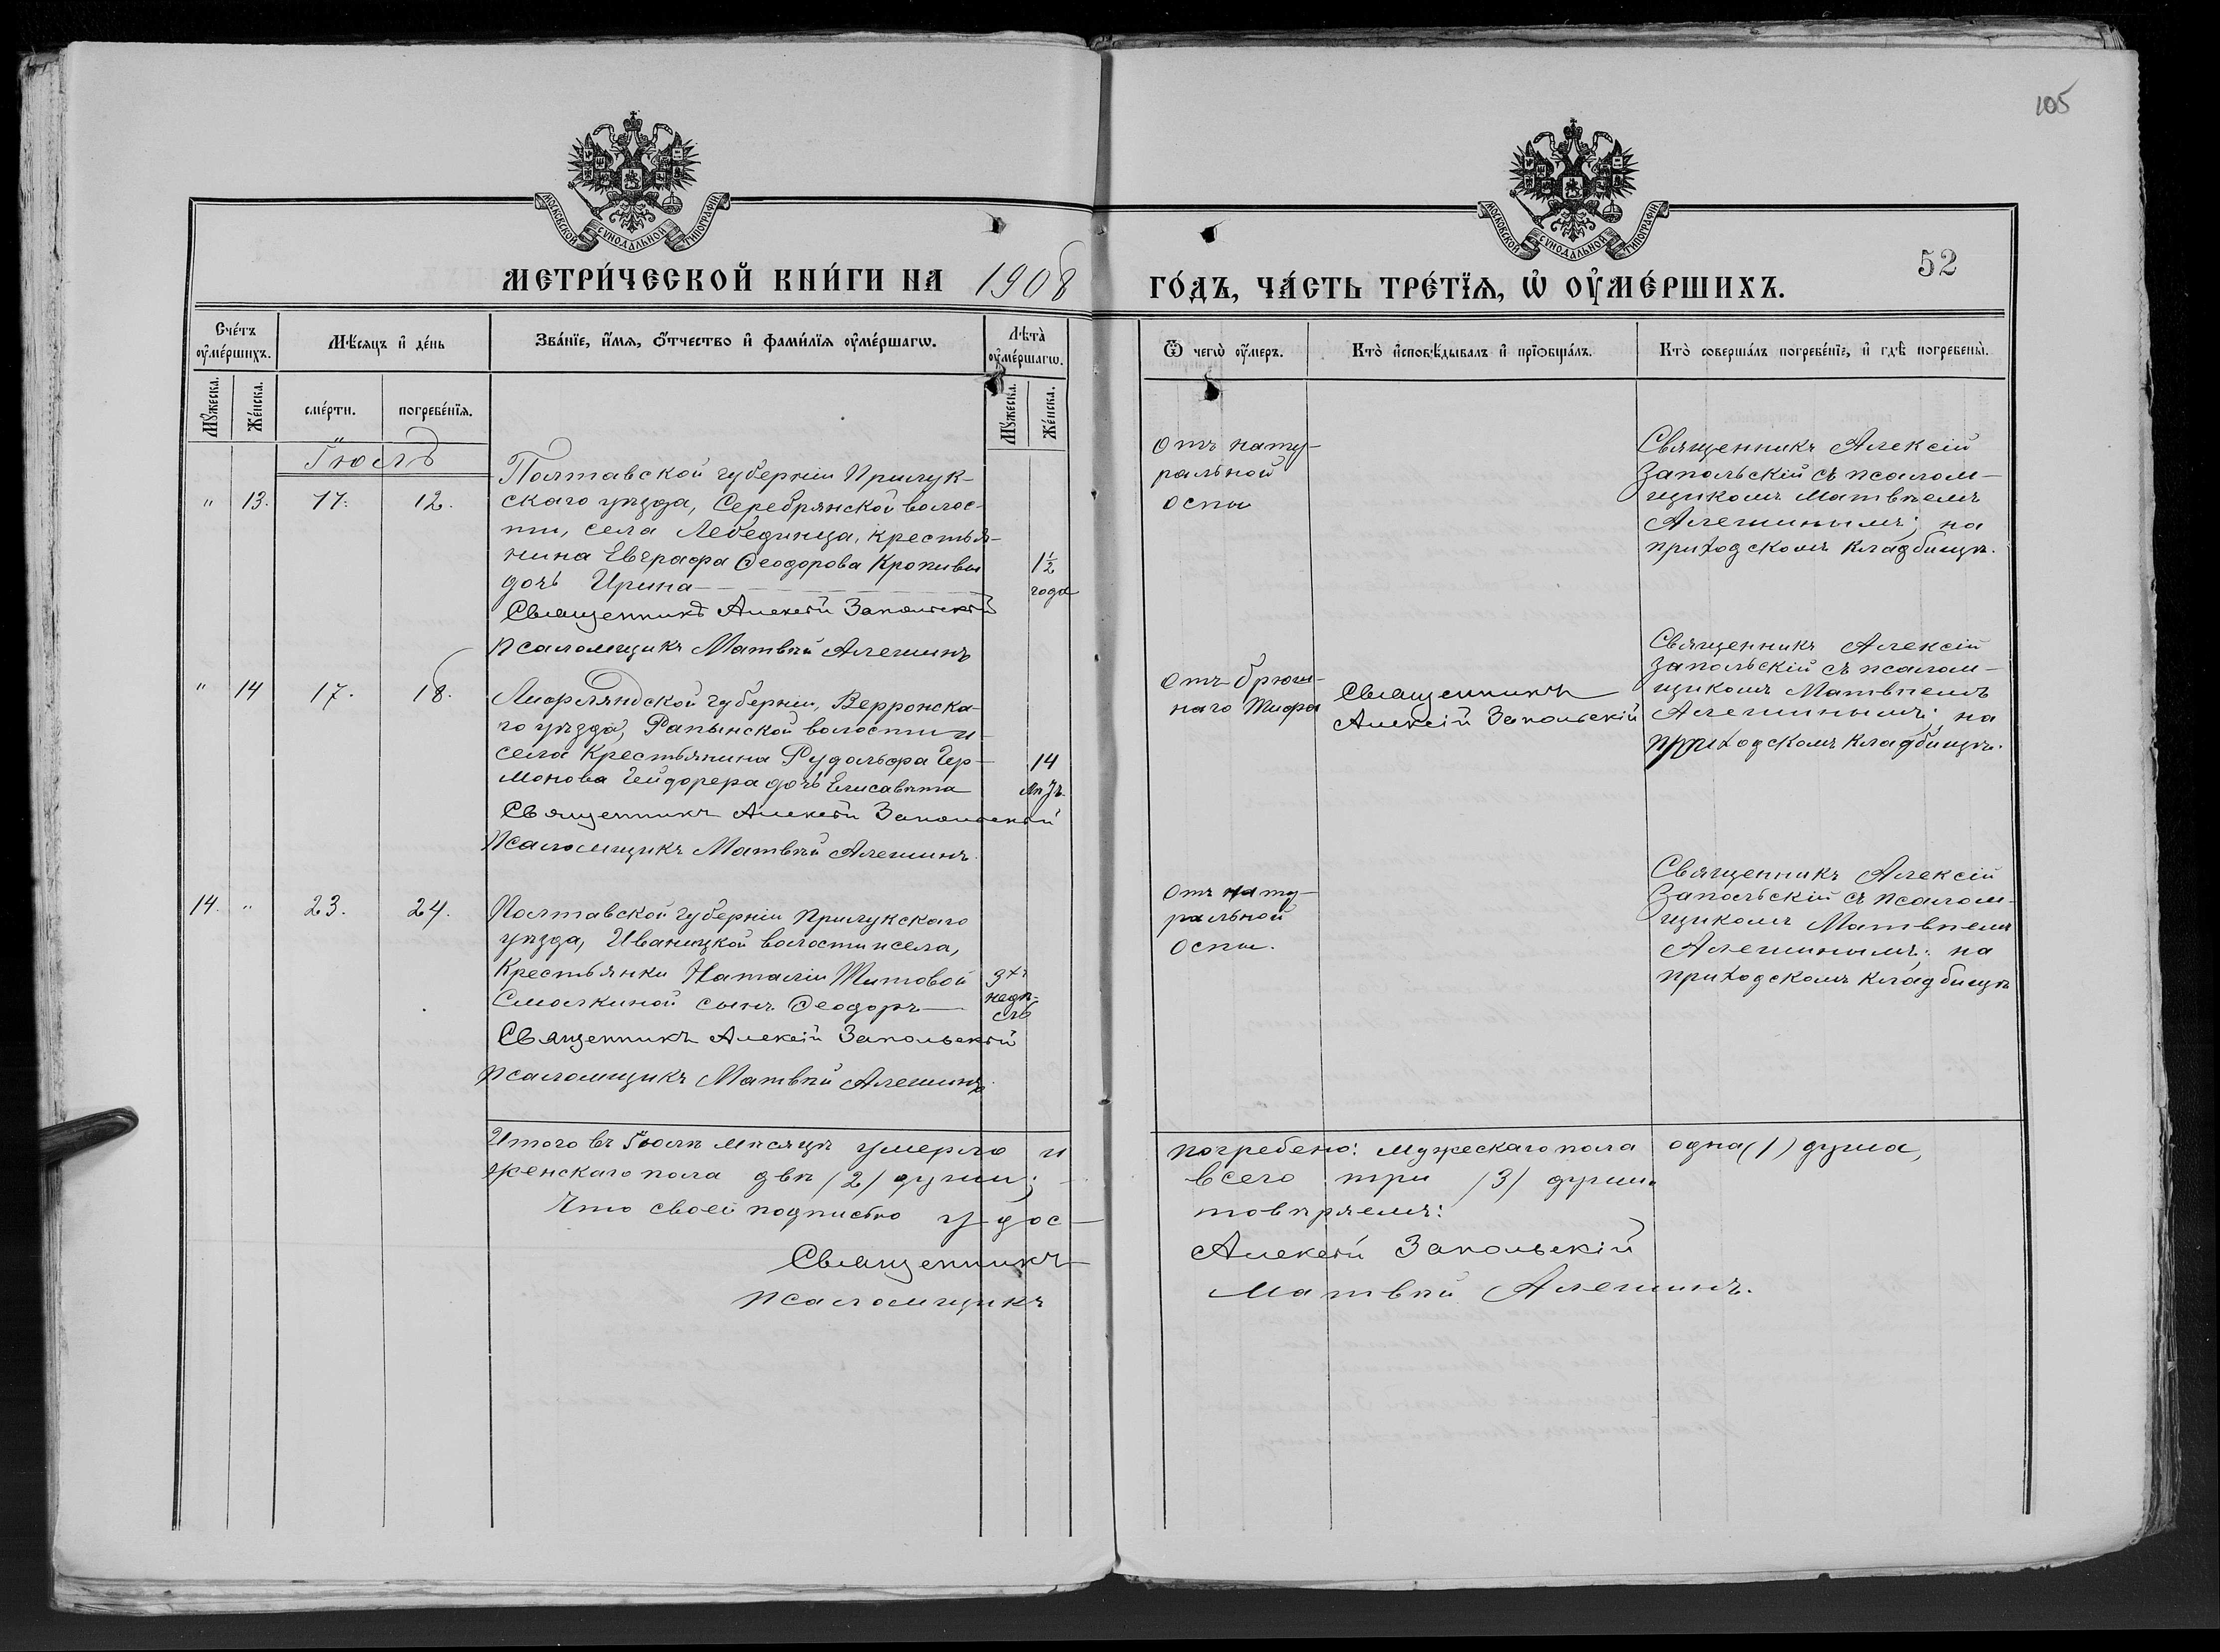 105
МОСКОВСКОЙ СѴНОДАЛЬНОЙ ТИПОГРАФІИ
МОСКОВСКОЙ СѴНОДАЛЬНОЙ ТИПОГРАФІИ
52
МЕТРИ́ЧЕСКОЙ КНИ́ГИ НА 1908 ГО́ДЪ, ЧА́СТЬ ТРЕ́ТЇѦ, Ѡ҆ ОУ҆МЕ́РШИХЪ.
Сче́тъ оу҆ме́ршихъ.
Мѣ́сяцъ и҆ де́нь
Зва́нїе, и҆́мѧ, о҆́тчество и҆ фами́лїѧ оу҆ме́ршагѡ.
Лѣта̀ оу҆ме́ршагѡ.
Ѿ чегѡ̀ оу҆́меръ.
Кто̀ и҆сповѣ́дывалъ и҆ прїѡбща́лъ.
Кто̀ соверша́лъ погребе́нїе, и҆ гдѣ̀ погребены̀.
Мꙋ́жеска. Же́нска. сме́рти. погребе́нїѧ. Мꙋ́жеска. Же́нска.
Іюль
" 13. 17. 12.
Полтавской губерніи Прилук-
скаго уѣзда, Серебрянской волос-
ти, села Лебединца, крестья-
нина Евграфа Ѳеодорова Кропивы
дочь Ирина
1½
года
Священникъ Алексій Запольскій
Псаломщикъ Матвѣй Алешинъ
Отъ нату-
ральной
оспы
Священникъ Алексій
Запольскій съ псалом-
щикомъ Матвѣемъ
Алешинымъ; на
приходскомъ кладбищѣ.
" 14 17. 18.
Лифляндской губерніи, Верронска-
го уѣзда, Рапынской волости и
села крестьянина Рудольфа Гер-
монова дочь Елисавѣта
14
лѣтъ
Священникъ Алексій Запольскій
Псаломщикъ Матвѣй Алешинъ.
Отъ брюш-
наго тифа
Священникъ
Алексій Запольскій
Священникъ Алексій
Запольскій съ псалом-
щикомъ Матвѣемъ
Алешинымъ; на
приходскомъ кладбищѣ.
14. " 23. 24.
Полтавской губерніи Прилукскаго
уѣзда, Иваницкой волости и села,
крестьянки Наталіи Титовой
сынъ Ѳеодоръ
3хъ
недѣ-
ль
Священникъ Алексій Запольскій
Псаломщикъ Матвѣй Алешинъ.
Отъ нату-
ральной
оспы.
Священникъ Алексій
Запольскій съ псалом-
щикомъ Матвѣемъ
Алешинымъ; на
приходскомъ кладбищѣ
Итого въ Іюлѣ мѣсяцѣ умерло и погребено: мужескаго пола одна (1) душа,
женскаго пола двѣ (2) души; всего три (3) души.
Что своей подписью удос- товѣряемъ:
Священникъ Алексій Запольскій
Псаломщикъ Матвѣй Алешинъ.